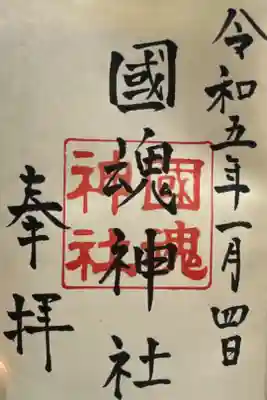 令和五年一月四日
國魂神社
國魂
神社
奉拝